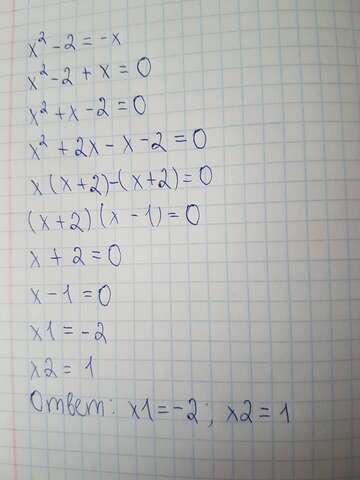 x² - 2 = -x
x² - 2 + x = 0
x² + x - 2 = 0
x² + 2x - x - 2 = 0
x(x+2)-(x+2)=0
(x+2)(x-1)=0
x + 2 = 0
x - 1 = 0
x1 = -2
x2 = 1
Ответ: x1=-2; x2=1